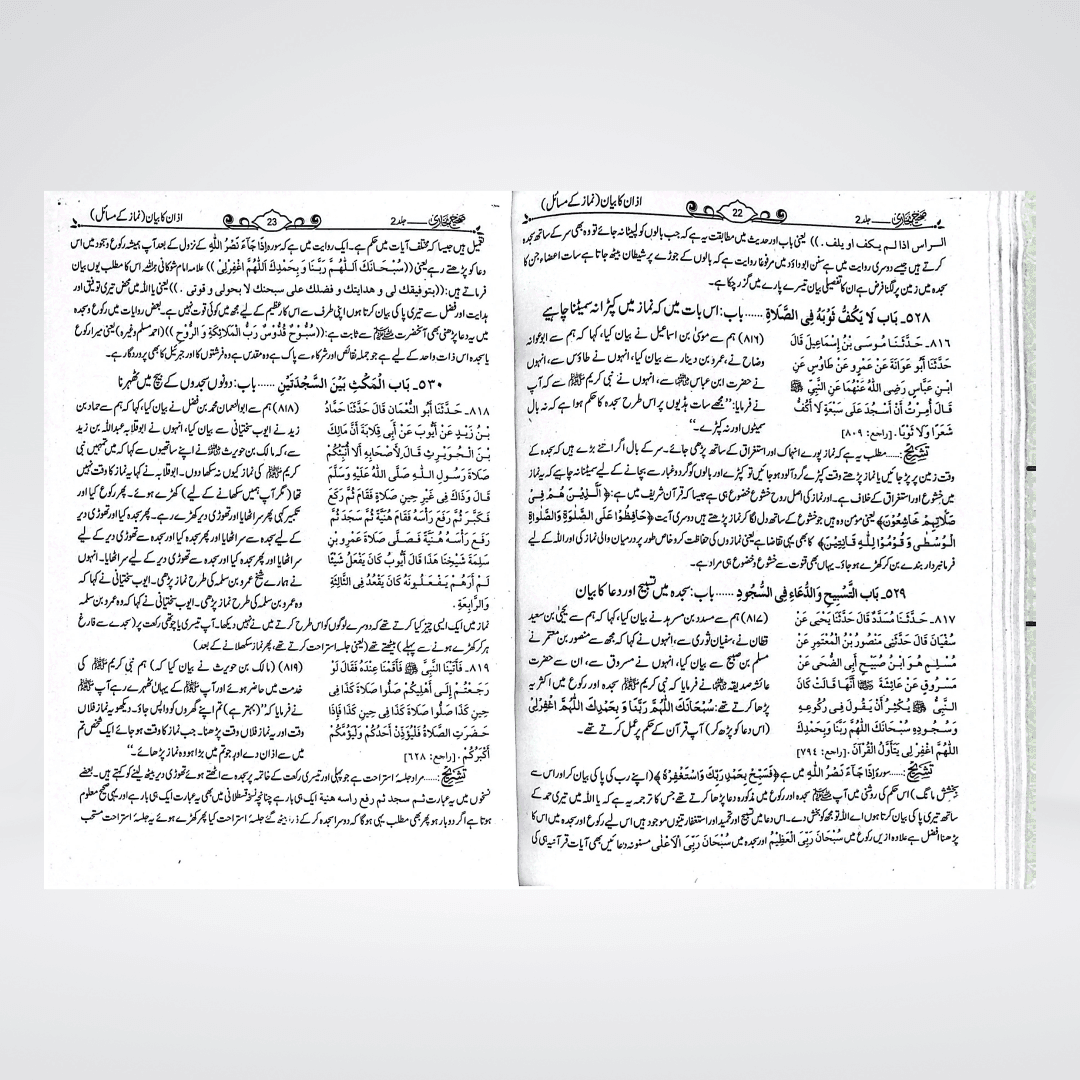 صحیح بخاری جلد 2
22
اذان کا بیان (نماز کے مسائل)
الراس اذا لم یکف او یلف .)) یعنی باب اور حدیث میں مطابقت یہ ہے کہ جب بالوں کو لپیٹا نہ جائے تو وہ بھی سر کے ساتھ سجدہ
کرتے ہیں جیسے دوسری روایت میں ہے سنن ابو داؤد میں مرفوعا روایت ہے کہ بالوں کے جوڑے پر شیطان بیٹھ جاتا ہے سات اعضاء جن کا
سجدہ میں زمین پر لگنا فرض ہے ان کا تفصیلی بیان تیسرے پارے میں گزر چکا ہے۔
٥٢٨۔ بَاب لَا يَكُفُّ ثَوْبَهُ فِى الصَّلَاةِ ...... باب: اس بات میں کہ نماز میں کپڑا نہ سمیٹنا چاہیے
٨١٦۔ حَدَّثَنَا مُوسَى بْنُ إِسْمَاعِيلَ قَالَ
حَدَّثَنَا أَبُو عَوَانَةَ عَنْ عَمْرٍو عَنْ طَاوُسٍ عَنِ
ابْنِ عَبَّاسٍ رَضِىَ اللَّهُ عَنْهُمَا عَنِ النَّبِىِّ ﷺ
قَالَ أُمِرْتُ أَنْ أَسْجُدَ عَلَى سَبْعَةٍ لَا أَكُفُّ
شَعَرًا وَلَا ثَوْبًا . [راجع: ٨٠٩]
(۸۱۶) ہم سے موسیٰ بن اسماعیل نے بیان کیا، کہا کہ ہم سے ابو عوانہ
وضاح نے، عمرو بن دینار سے بیان کیا، انہوں نے طاؤس سے، انہوں
نے حضرت ابن عباس رضی اللہ عنہما سے، انہوں نے نبی کریم ﷺ سے کہ آپ
نے فرمایا: ”مجھے سات ہڈیوں پر اس طرح سجدہ کا حکم ہوا ہے کہ نہ بال
سمیٹوں اور نہ کپڑے۔“
تشریح:..... مطلب یہ ہے کہ نماز پورے انہماک اور استغراق کے ساتھ پڑھی جائے۔ سر کے بال اگر اتنے بڑے ہیں کہ سجدہ کے
وقت زمین پر پڑ جائیں یا نماز پڑھتے وقت کپڑے گرد آلود ہو جائیں تو کپڑے اور بالوں کو گرد و غبار سے بچانے کے لیے سمیٹنا نہ چاہیے کہ یہ نماز
میں خشوع اور استغراق کے خلاف ہے۔ اور نماز کی اصل روح خشوع خضوع ہی ہے جیسا کہ قرآن شریف میں ہے: ﴿الَّذِيْنَ هُمْ فِيْ
صَلَاتِهِمْ خَاشِعُوْنَ﴾ یعنی مومن وہ ہیں جو خشوع کے ساتھ دل لگا کر نماز پڑھتے ہیں دوسری آیت ﴿حَافِظُوْا عَلَى الصَّلَوٰةِ وَالصَّلَوٰةِ
الْوُسْطٰى وَقُوْمُوْا لِلّٰهِ قَانِتِيْنَ﴾ کا بھی یہی تقاضا ہے یعنی نمازوں کی حفاظت کرو خاص طور پر درمیان والی نماز کی اور اللہ کے لیے
فرمانبردار بندے بن کر کھڑے ہو جاؤ۔ یہاں بھی قنوت سے خشوع و خضوع ہی مراد ہے۔
٥٢٩۔ بَاب التَّسْبِيحِ وَالدُّعَاءِ فِى السُّجُودِ ...... باب: سجدہ میں تسبیح اور دعا کا بیان
٨١٧۔ حَدَّثَنَا مُسَدَّدٌ قَالَ حَدَّثَنَا يَحْيَى عَنْ
سُفْيَانَ قَالَ حَدَّثَنِى مَنْصُورُ بْنُ الْمُعْتَمِرِ عَنْ
مُسْلِمٍ هُوَ ابْنُ صُبَيْحٍ أَبِى الضُّحَى عَنْ
مَسْرُوقٍ عَنْ عَائِشَةَ رضی اللہ عنہا أَنَّهَا قَالَتْ كَانَ
النَّبِىُّ ﷺ يُكْثِرُ أَنْ يَقُولَ فِى رُكُوعِهِ
وَسُجُودِهِ سُبْحَانَكَ اللَّهُمَّ رَبَّنَا وَبِحَمْدِكَ
اللَّهُمَّ اغْفِرْ لِى يَتَأَوَّلُ الْقُرْآنَ . [راجع: ٧٩٤]
(۸۱۷) ہم سے مسدد بن مسرہد نے بیان کیا، کہا کہ ہم سے یحییٰ بن سعید
قطان نے، سفیان ثوری سے، انہوں نے کہا کہ مجھ سے منصور بن معتمر نے
مسلم بن صبیح سے بیان کیا، انہوں نے مسروق سے، ان سے حضرت
عائشہ صدیقہ رضی اللہ عنہا نے فرمایا کہ نبی کریم ﷺ سجدہ اور رکوع میں اکثر یہ
پڑھا کرتے تھے: سُبْحَانَكَ اللّٰهُمَّ رَبَّنَا وَ بِحَمْدِكَ اللّٰهُمَّ اغْفِرْلِيْ
(اس دعا کو پڑھ کر) آپ قرآن کے حکم پر عمل کرتے تھے۔
تشریح:..... سورۂ اِذَا جَآءَ نَصْرُ اللّٰهِ میں ہے ﴿فَسَبِّحْ بِحَمْدِ رَبِّكَ وَاسْتَغْفِرْهُ﴾ (اپنے رب کی پاکی بیان کر اور اس سے
بخشش مانگ) اس حکم کی روشنی میں آپ ﷺ سجدہ اور رکوع میں مذکورہ دعا پڑھا کرتے تھے جس کا ترجمہ یہ ہے کہ یا اللہ میں تیری حمد کے
ساتھ تیری پاکی بیان کرتا ہوں اے اللہ تو مجھ کو بخش دے۔ اس دعا میں تسبیح اور تحمید اور استغفار تینوں موجود ہیں اس لیے رکوع اور سجدہ میں اس کا
پڑھنا افضل ہے علاوہ ازیں رکوع میں سُبْحَانَ رَبِّيَ الْعَظِيْمُ اور سجدہ میں سُبْحَانَ رَبِّيَ الْاَعْلٰى مسنونہ دعائیں بھی آیات قرآنیہ ہی کی
صحیح بخاری جلد 2
23
اذان کا بیان (نماز کے مسائل)
تعمیل ہیں جیسا کہ مختلف آیات میں حکم ہے۔ ایک روایت میں ہے کہ سورہ اِذَا جَآءَ نَصْرُ اللّٰهِ کے نزول کے بعد آپ ہمیشہ رکوع و سجود میں اس
دعا کو پڑھتے رہے یعنی ((سُبْحَانَكَ اَللّٰهُمَّ رَبَّنَا وَ بِحَمْدِكَ اَللّٰهُمَّ اغْفِرْلِيْ)) علامہ امام شوکانی رحمہ اللہ اس کا مطلب یوں بیان
فرماتے ہیں: ((بتوفیقك لی و هدایتك و فضلك علی سبحتك لا بحولی و قوتی .)) یعنی یا اللہ میں محض تیری توفیق اور
ہدایت اور فضل سے تیری پاکی بیان کرتا ہوں اپنی طرف سے اس کار عظیم کے لیے مجھ میں کوئی قوت نہیں ہے۔ بعض روایات میں رکوع و سجدہ
میں یہ دعا پڑھنی بھی آنحضرت ﷺ سے ثابت ہے: ((سُبُّوْحٌ قُدُّوْسٌ رَبُّ الْمَلَائِكَةِ وَ الرُّوْحِ)) (احمد مسلم وغیرہ) یعنی میرا رکوع
یا سجدہ اس ذات واحد کے لیے ہے جو جملہ نقائص اور شرکاء سے پاک ہے وہ مقدس ہے وہ فرشتوں کا اور جبرئیل کا بھی پروردگار ہے۔
٥٣٠۔ بَاب الْمُكْثِ بَيْنَ السَّجْدَتَيْنِ ...... باب: دونوں سجدوں کے بیچ میں ٹھہرنا
٨١٨۔ حَدَّثَنَا أَبُو النُّعْمَانِ قَالَ حَدَّثَنَا حَمَّادُ
بْنُ زَيْدٍ عَنْ أَيُّوبَ عَنْ أَبِى قِلَابَةَ أَنَّ مَالِكَ
بْنَ الْحُوَيْرِثِ قَالَ لِأَصْحَابِهِ أَلَا أُنَبِّئُكُمْ
صَلَاةَ رَسُولِ اللَّهِ صَلَّى اللَّهُ عَلَيْهِ وَسَلَّمَ
قَالَ وَذَاكَ فِى غَيْرِ حِينِ صَلَاةٍ فَقَامَ ثُمَّ رَكَعَ
فَكَبَّرَ ثُمَّ رَفَعَ رَأْسَهُ فَقَامَ هُنَيَّةً ثُمَّ سَجَدَ ثُمَّ
رَفَعَ رَأْسَهُ هُنَيَّةً فَصَلَّى صَلَاةَ عَمْرِو بْنِ
سَلِمَةَ شَيْخِنَا هَذَا قَالَ أَيُّوبُ كَانَ يَفْعَلُ شَيْئًا
لَمْ أَرَهُمْ يَفْعَلُونَهُ كَانَ يَقْعُدُ فِى الثَّالِثَةِ
وَالرَّابِعَةِ .
(۸۱۸) ہم سے ابو النعمان محمد بن فضل نے بیان کیا، کہا کہ ہم سے حماد بن
زید نے ایوب سختیانی سے بیان کیا، انہوں نے ابو قلابہ عبداللہ بن زید
سے، کہ مالک بن حویرث رضی اللہ عنہ نے اپنے ساتھیوں سے کہا کہ میں تمہیں نبی
کریم ﷺ کی نماز کیوں نہ سکھا دوں۔ ابو قلابہ نے کہا یہ نماز کا وقت نہیں
تھا (مگر آپ ہمیں سکھانے کے لیے) کھڑے ہوئے۔ پھر رکوع کیا اور
تکبیر کہی پھر سر اٹھایا اور تھوڑی دیر کھڑے رہے۔ پھر سجدہ کیا اور تھوڑی دیر
کے لیے سجدہ سے سر اٹھایا اور پھر سجدہ کیا اور سجدہ سے تھوڑی دیر کے لیے
سر اٹھایا اور پھر سجدہ کیا اور سجدہ سے تھوڑی دیر کے لیے سر اٹھایا۔ انہوں
نے ہمارے شیخ عمرو بن سلمہ کی طرح نماز پڑھی۔ ایوب سختیانی نے کہا کہ
وہ عمرو بن سلمہ کی طرح نماز پڑھی۔ ایوب سختیانی نے کہا کہ وہ عمرو بن سلمہ
نماز میں ایک ایسی چیز کیا کرتے تھے کہ دوسرے لوگوں کو اس طرح کرتے میں نے نہیں دیکھا۔ آپ تیسری یا چوتھی رکعت پر (سجدہ سے فارغ
ہو کر کھڑے ہونے سے پہلے) بیٹھتے تھے (یعنی جلسۂ استراحت کرتے تھے، پھر نماز سکھلانے کے بعد)
٨١٩۔ فَأَتَيْنَا النَّبِىَّ ﷺ فَأَقَمْنَا عِنْدَهُ فَقَالَ لَوْ
رَجَعْتُمْ إِلَى أَهْلِيكُمْ صَلُّوا صَلَاةَ كَذَا فِى
حِينِ كَذَا صَلُّوا صَلَاةَ كَذَا فِى حِينِ كَذَا فَإِذَا
حَضَرَتِ الصَّلَاةُ فَلْيُؤَذِّنْ أَحَدُكُمْ وَلْيَؤُمَّكُمْ
أَكْبَرُكُمْ . [راجع: ٦٢٨]
(۸۱۹) (مالک بن حویرث نے بیان کیا کہ) ہم نبی کریم ﷺ کی
خدمت میں حاضر ہوئے اور آپ ﷺ کے یہاں ٹھہرے رہے آپ ﷺ
نے فرمایا کہ ”(بہتر ہے) تم اپنے گھروں کو واپس جاؤ۔ دیکھو یہ نماز فلاں
وقت اور یہ نماز فلاں وقت پڑھنا۔ جب نماز کا وقت ہو جائے ایک شخص تم
میں سے اذان دے اور جو تم میں بڑا ہو وہ نماز پڑھائے۔“
تشریح:..... مراد جلسۂ استراحت ہے جو پہلی اور تیسری رکعت کے خاتمہ پر سجدہ سے اٹھتے ہوئے تھوڑی دیر بیٹھ لینے کو کہتے ہیں۔ بعضے
نسخوں میں یہ عبارت ثم سجد ثم رفع راسه هنية ایک ہی بار ہے چنانچہ نسخہ قسطلانی میں بھی یہ عبارت ایک ہی بار ہے اور یہی صحیح معلوم
ہوتا ہے اگر دوبار ہو پھر بھی مطلب یہی ہوگا کہ دوسرا سجدہ کر کے ذرا بیٹھ گئے جلسۂ استراحت کیا پھر کھڑے ہوئے یہ جلسۂ استراحت مستحب